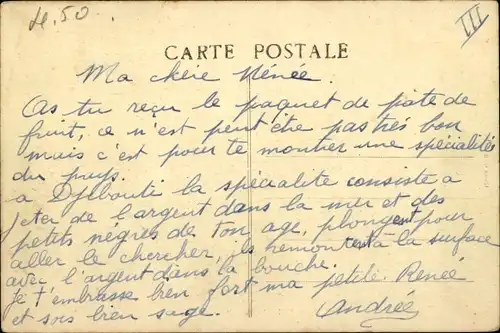 4.50
III
CARTE POSTALE
Ma chère Nénée.
As tu reçu le paquet de pate de
fruit, ce n'est peut être pas très bon
mais c'est pour te montrer une spécialités
du pays.
a Djibouti la spécialite consiste a
jeter de l'argent dans la mer et des
petits nègres de ton age, plongent pour
aller le chercher, ils remontent à la surface
avec l'argent dans la bouche.
Je t'embrasse bien fort ma petite Renée
et sois bien sage.
Andrée